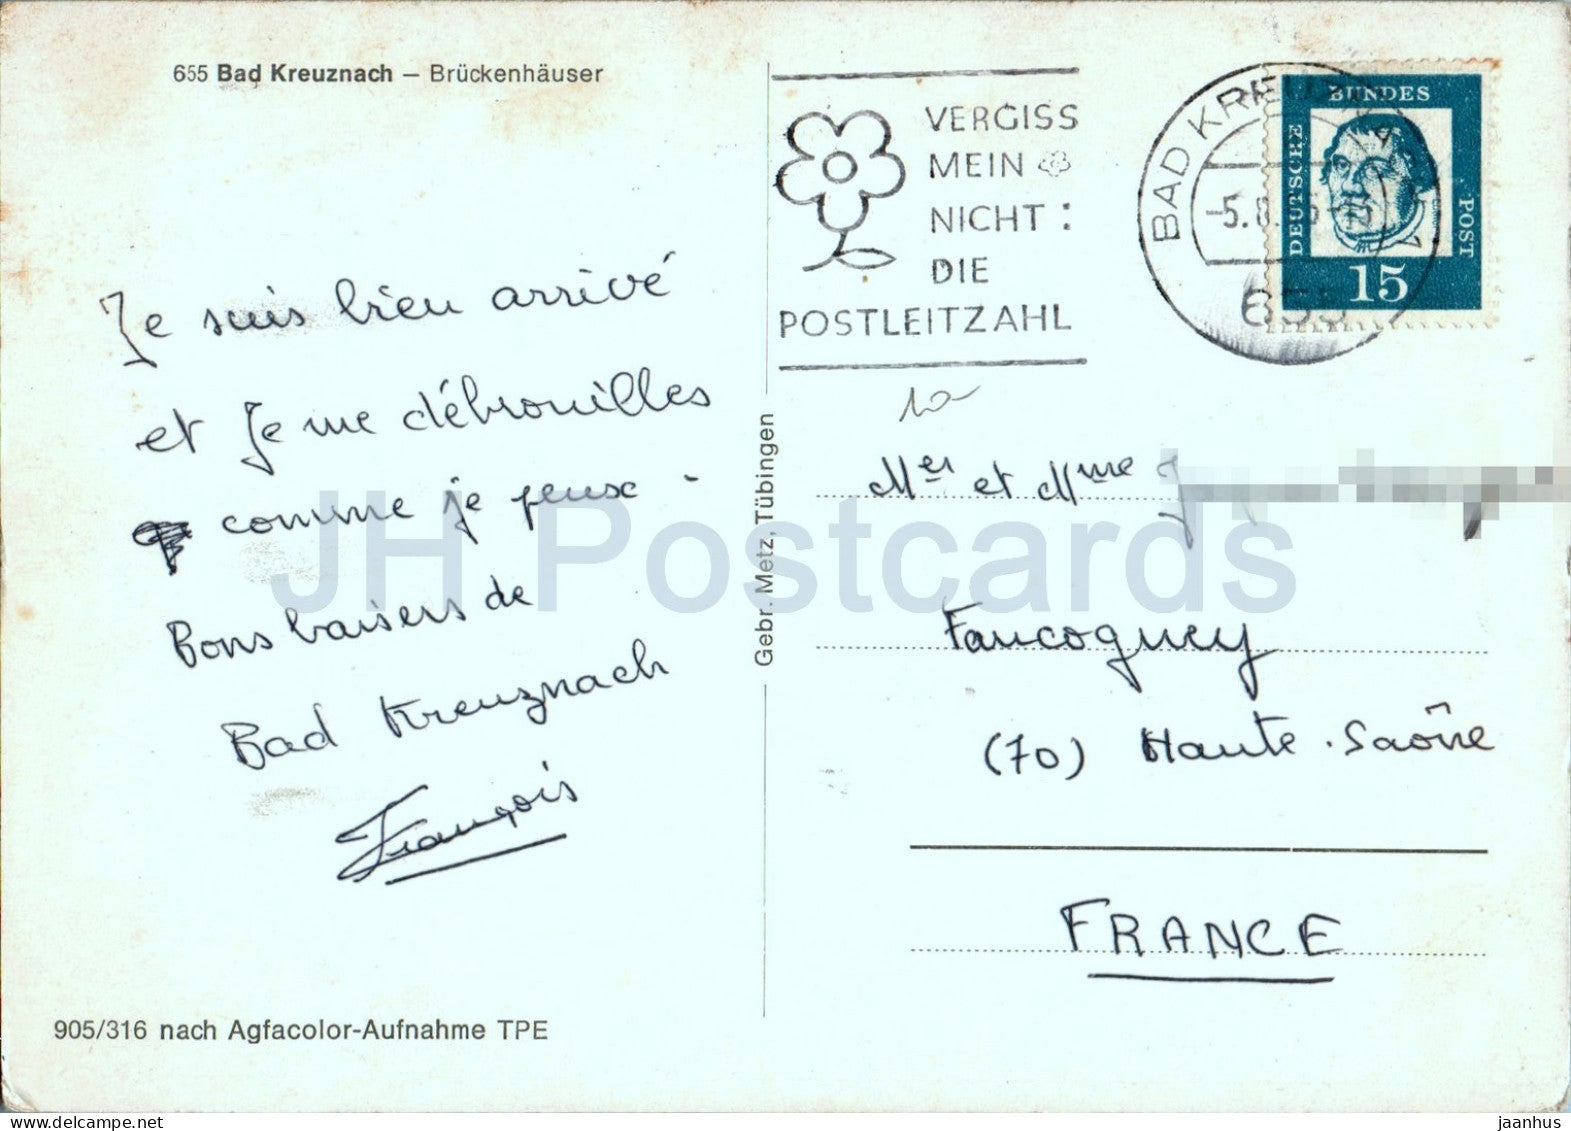 655 Bad Kreuznach – Brückenhäuser
Je suis bien arrivé
et Je me débrouilles
comme je peux -
Bons baisers de
Bad Kreuznach
François
905/316 nach Agfacolor-Aufnahme TPE
Gebr. Metz, Tübingen
VERGISS
MEIN
NICHT:
DIE
POSTLEITZAHL
BAD KREUZNACH
-5.8.
655
DEUTSCHE
BUNDES
POST
15
Mer et Mme J
Faucogney
(70) Haute-Saône
FRANCE
JH Postcards
hippostcard.com/jaanhus